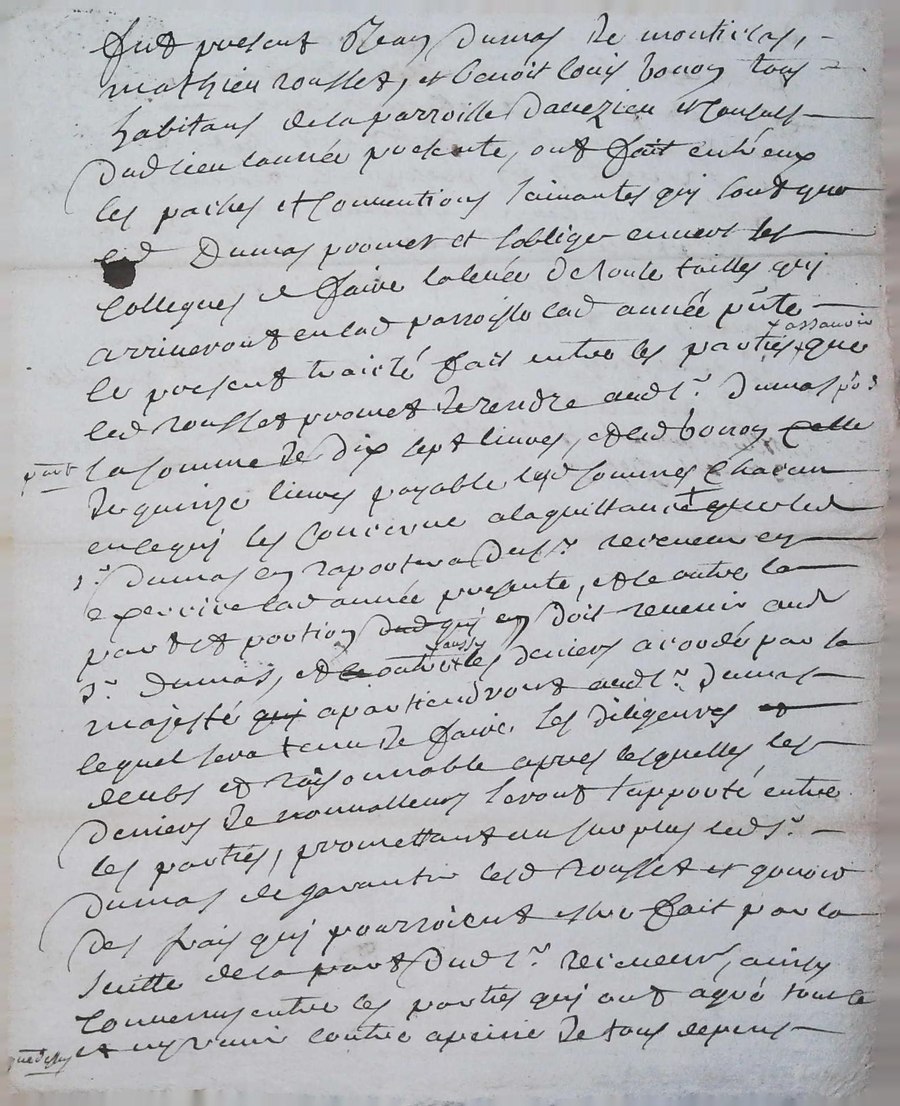 furent present Jean Dumas de monteilas,
mathieu rousset, et benoit louis bonon tous
habitans de la parroisse davezieu et Consuls
dud lieu lannée presente, ont fait entre eux
les paches et Conventions suivantes qui sont que
led Dumas promet et soblige envers les
Collegues de faire la levée de toute tailles quj
arriveront en lad parroisse lad année pnte
le present traicté fait entre les parties que
x assavoir
led rousset promet de rendre aud sr. Dumas pr
la somme de dix sept livres, et led bonon celle
de quinze livres payable lesd sommes Chacun
en ce quj les Concerne a la quittance que led
sr. Dumas en raportera dud sr. receveur en
exercice lad année presente, et le outre la
part et portion quj en doit revenir aud
sr. Dumas, et outre les deniers acordé par la
x aussy
majesté apartiendront aud sr. Dumas
lequel sera tenu de faire les diligences
deubs et raisonnable apres lesquelles les
deniers de nonvalleurs seront supporté entre
les parties, promettant au surplus led sr.
Dumas de garantir lesd rousset et
des frais quj pourroient estre fait par la
suitte de la part dud sr. receveur, ainsy
Convenus entre les parties quj ont agréé tout ce
et ny venir contre a peine de tous depens